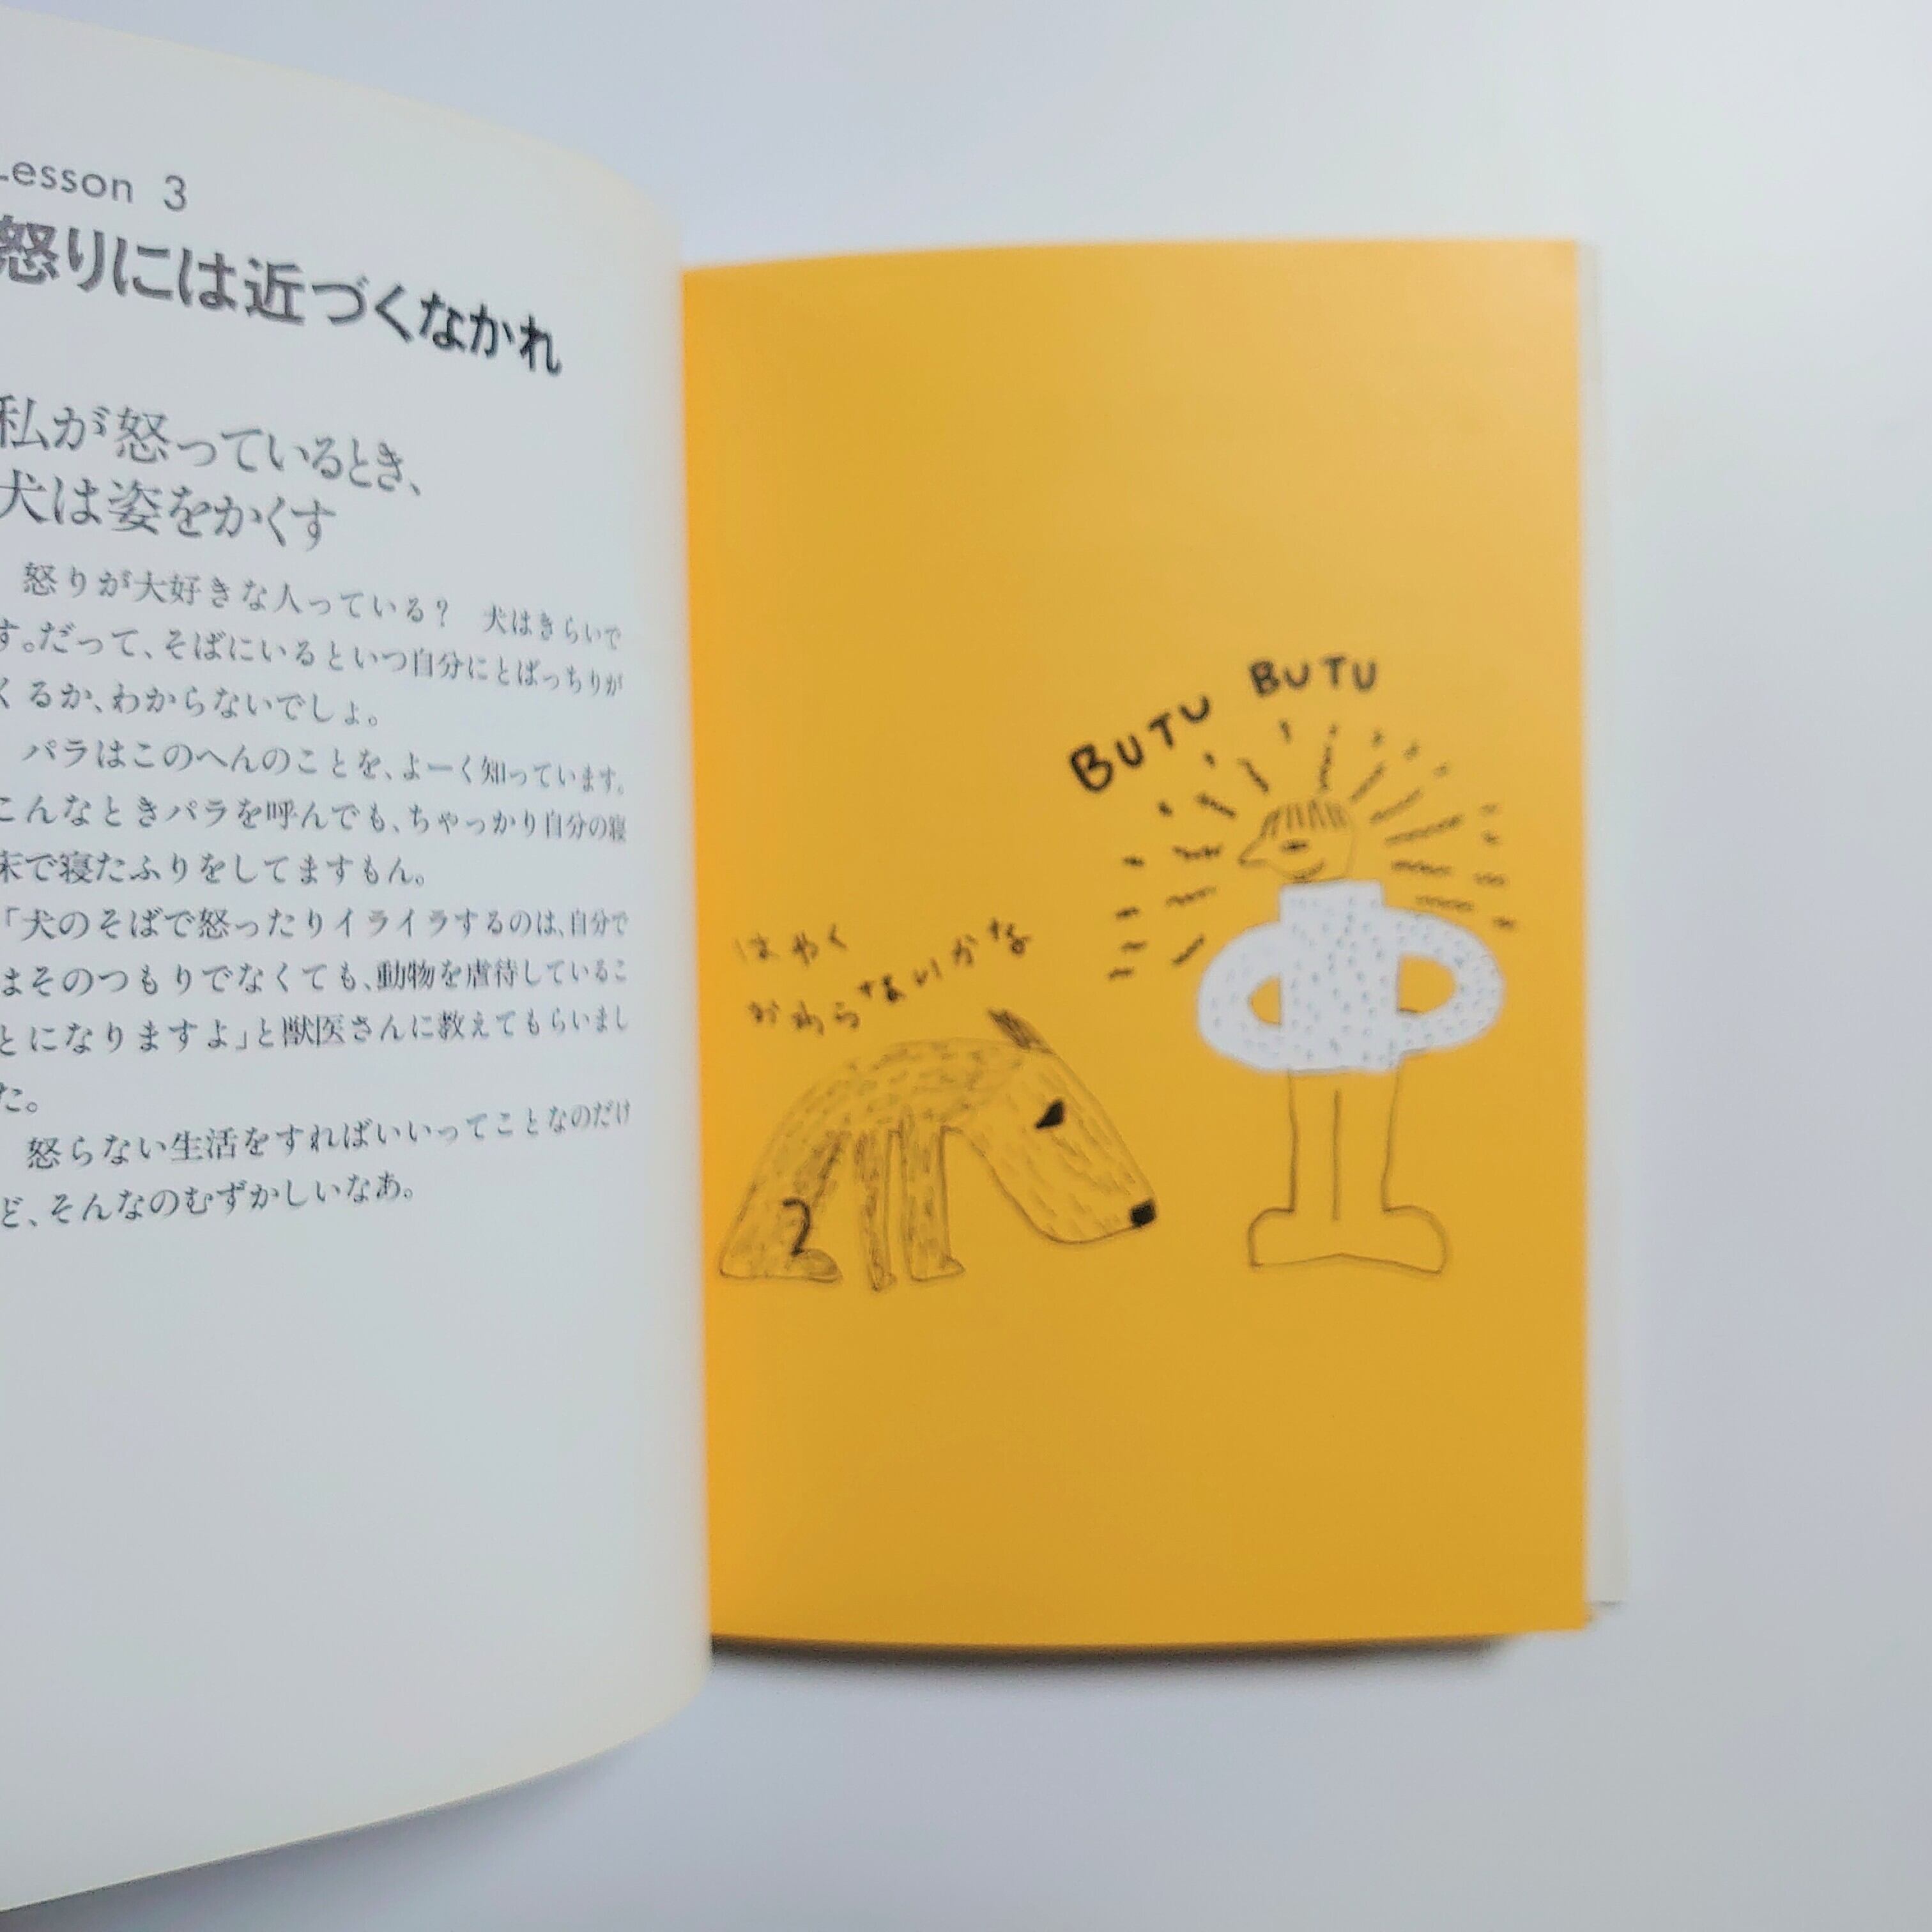 Lesson 3
怒りには近づくなかれ
私が怒っているとき、
犬は姿をかくす
怒りが大好きな人っている？　犬はきらいで
す。だって、そばにいるといつ自分にとばっちりが
くるか、わからないでしょ。
パラはこのへんのことを、よーく知っています。
こんなときパラを呼んでも、ちゃっかり自分の寝
床で寝たふりをしてますもん。
「犬のそばで怒ったりイライラするのは、自分で
はそのつもりでなくても、動物を虐待しているこ
とになりますよ」と獣医さんに教えてもらいまし
た。
怒らない生活をすればいいってことなのだけ
ど、そんなのむずかしいなあ。
BUTU BUTU
はやく
おわらないかな